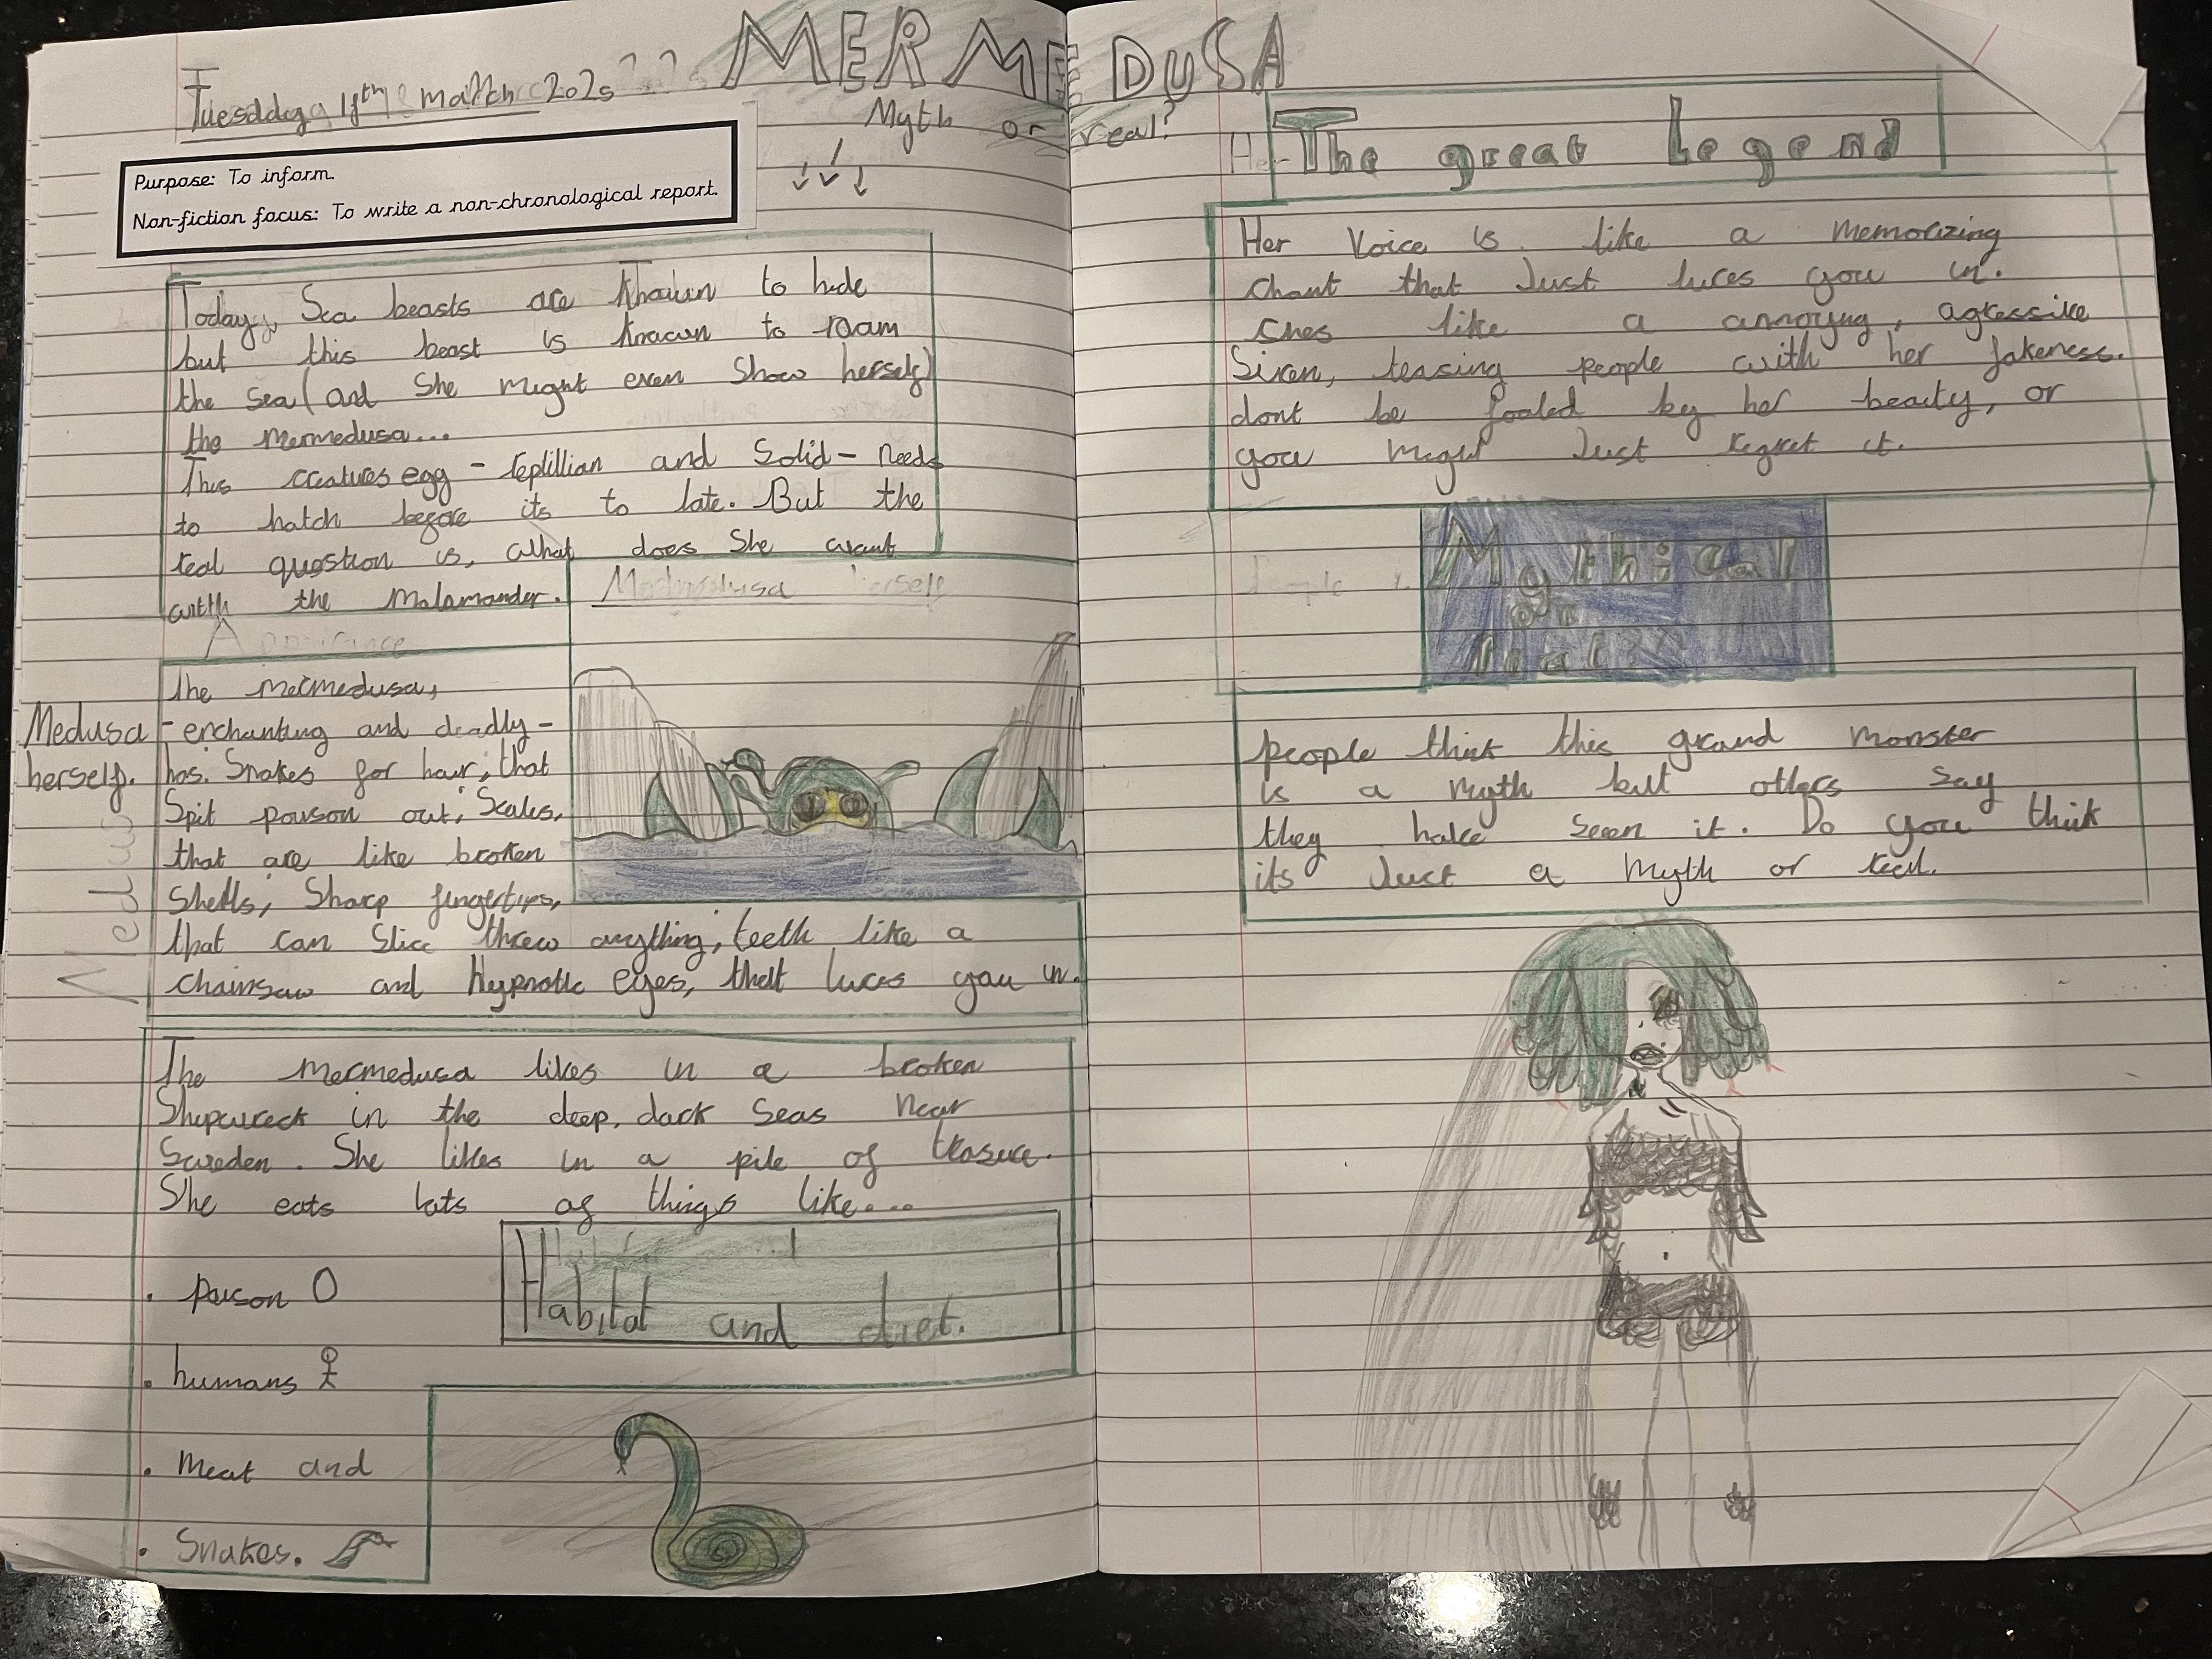 Tuesday 18th march 2025
MERMEDUSA
Myth or real?
Purpose: To inform.
Non-fiction focus: To write a non-chronological report.
Today, Sea beasts are known to hide
but this beast is known to roam
the sea (and She might even Show herself)
the mermedusa...
This creatures egg - reptillian and Solid - needs
to hatch before its to late. But the
real question is, what does She want
with the Malamander.
Appeirance
Medusa herself
Medusa
herself.
The mermedusa,
- enchanting and deadly -
has. Snakes for hair, that
Spit poison out; Scales,
that are like broken
Shells; Sharp fingertips,
that can Slice threw anything; teeth like a
chainsaw and Hypnotic eyes, that lures you in.
The mermedusa lives in a broken
Shipwreck in the deep, dark seas near
Sweden. She lives in a pile of treasure.
She eats lots of things like....
Habitat and diet.
. poison
. humans
. Meat and
. Snakes.
The great legend
Her Voice is like a memorizing
chant that Just lures you in.
Shes like a annoying, agressive
Siren, teasing people with her fakeness.
dont be fooled by her beauty, or
you might Just regret it.
Mythical
or
real??
people think this grand monster
is a myth but others say
they have seen it. Do you think
its Just a myth or real.